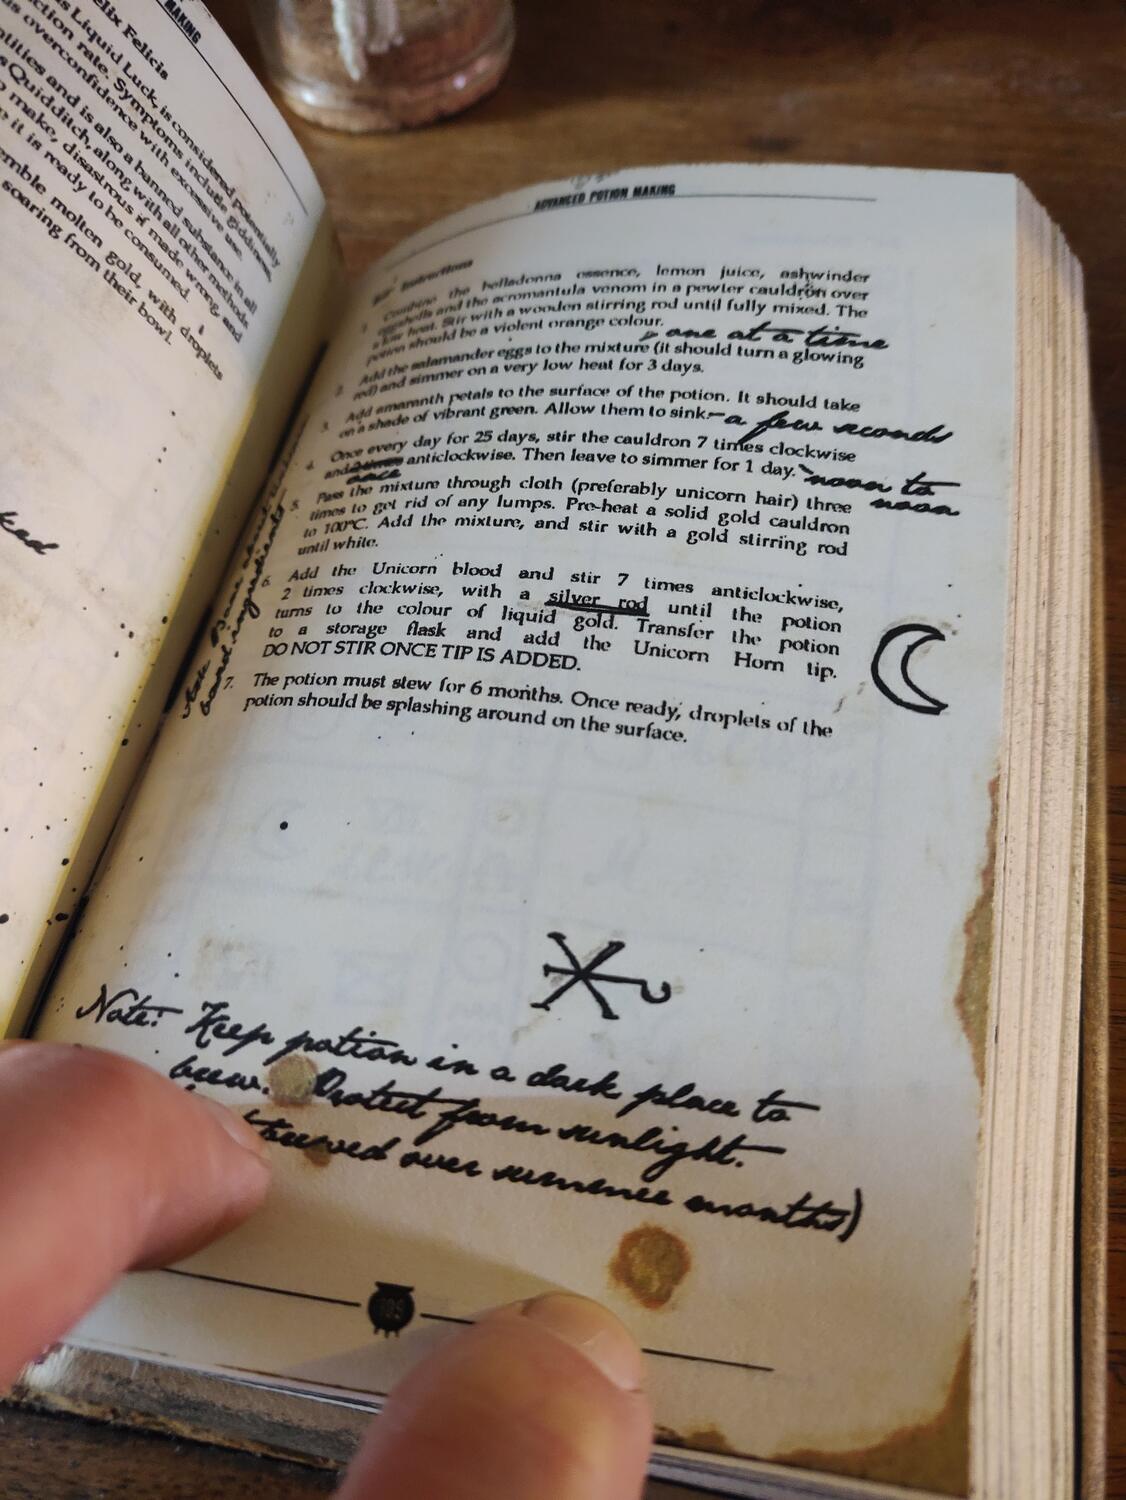 MAKING
elix Felicis
s Liquid Luck, is considered potentially
ction rate. Symptoms include giddiness,
s overconfidence with excessive use.
olities and is also a banned substance in all
s Quidditch, along with all other methods
o make, disastrous if made wrong, and
e it is ready to be consumed.
emble molten gold, with droplets
soaring from their bowl.
ked
ADVANCED POTION MAKING
Instructions
1. Combine the belladonna essence, lemon juice, ashwinder
eggshells and the acromantula venom in a pewter cauldron over
a low heat. Stir with a wooden stirring rod until fully mixed. The
potion should be a violent orange colour.
one at a time
2. Add the salamander eggs to the mixture (it should turn a glowing
red) and simmer on a very low heat for 3 days.
3. Add amaranth petals to the surface of the potion. It should take
on a shade of vibrant green. Allow them to sink. - a few seconds
4. Once every day for 25 days, stir the cauldron 7 times clockwise
and anticlockwise. Then leave to simmer for 1 day. noon to
once
noon
5. Pass the mixture through cloth (preferably unicorn hair) three
times to get rid of any lumps. Pre-heat a solid gold cauldron
to 100°C. Add the mixture, and stir with a gold stirring rod
until white.
6. Add the Unicorn blood and stir 7 times anticlockwise,
2 times clockwise, with a silver rod until the potion
turns to the colour of liquid gold. Transfer the potion
to a storage flask and add the Unicorn Horn tip.
DO NOT STIR ONCE TIP IS ADDED.
7. The potion must stew for 6 months. Once ready, droplets of the
potion should be splashing around on the surface.
ingredients
Note: Keep potion in a dark place to
brew. Protect from sunlight.
brewed over summer months)